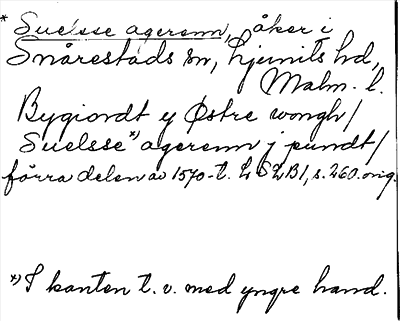 * Suelsse agerenn, åker i
Snårestads sn, Ljunits hd,
Malm. l.
Bygiordt y Østre wongh/
Suelsse*) agerenn j pundt/
förra delen av 1570-t. LSLB1, s. 260. orig.
*) I kanten t. v. med yngre hand.